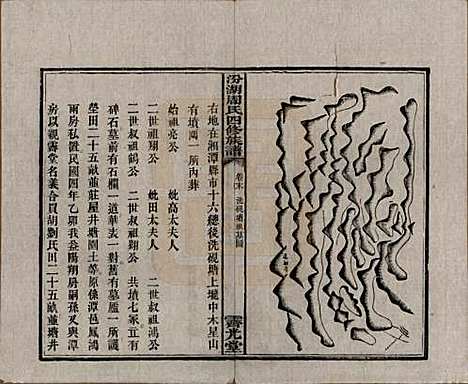 汾湖周氏四修族譜
卷末
霽光堂
右地在湘潭縣市十六總後洗硯塘上壠中木星山
有墳兩一所內葬
始祖亮公 妣高太夫人
二世祖翔公 妣田太夫人 二世叔祖鴻公
二世叔祖鶴公 二世叔祖鵠公 共墳七冢五有
碑石墓前有石欄一道華表一對舊有墓廬一所護
塋田二十五畝並莊屋井塘園土等原係潭邑鳳鴻
兩房私管民國四年乙卯我益陽翔房嗣孫又與潭
房以觀霽堂名義合買胡劉氏田二十五畝並塘井